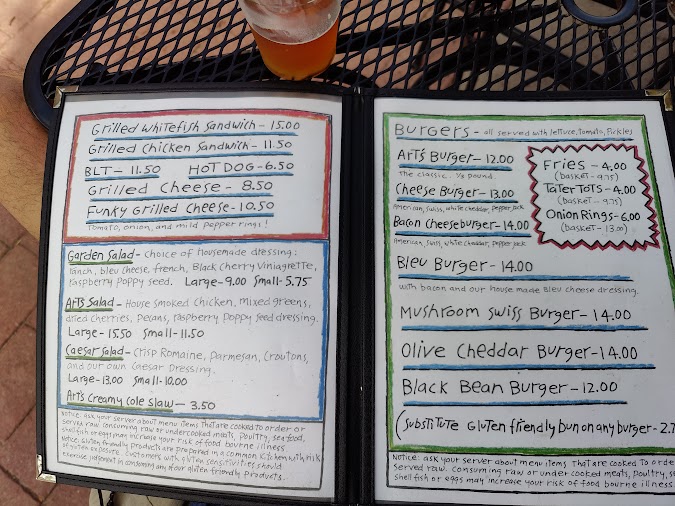 Grilled Whitefish Sandwich - 15.00
Grilled Chicken Sandwich - 11.50
BLT - 11.50 HOT DOG - 6.50
Grilled Cheese - 8.50
Funky Grilled Cheese - 10.50
Tomato, onion, and mild pepper rings!
Garden Salad - Choice of Housemade dressing:
ranch, bleu cheese, french, Black Cherry Viniagrette,
raspberry Poppy seed. Large - 9.00 Small - 5.75
Art's Salad - House smoked chicken, mixed greens,
dried cherries, pecans, raspberry Poppy seed dressing.
Large - 15.50 Small - 11.50
Caesar Salad - Crisp Romaine, Parmesan, Croutons,
and our own Caesar Dressing.
Large - 13.00 Small - 10.00
Art's Creamy Cole Slaw - 3.50
Notice: ask your server about menu items that are cooked to order or
served raw. Consuming raw or undercooked meats, poultry, seafood,
shellfish or eggs may increase your risk of food bourne illness
Notice: Gluten friendly products are prepared in a common kitchen with risk
of gluten exposure. Customers with gluten sensitivities should
exercise judgement in consuming any of our gluten friendly products.
Burgers - all served with lettuce, tomato, Pickles
Art's Burger - 12.00
The classic. 1/3 pound
Cheese Burger - 13.00
American, Swiss, white cheddar, pepper jack
Bacon Cheeseburger - 14.00
American, Swiss, white cheddar, pepper jack
Fries - 4.00
(basket - 9.75)
Tater Tots - 4.00
(basket - 9.75)
Onion Rings - 6.00
(basket - 13.00)
Bleu Burger - 14.00
with bacon and our house made Bleu cheese dressing.
Mushroom Swiss Burger - 14.00
Olive Cheddar Burger - 14.00
Black Bean Burger - 12.00
(Substitute Gluten friendly bun on any burger - 2.7
Notice: ask your server about menu items that are cooked to orde
served raw. Consuming raw or undercooked meats, poultry, se
shellfish or eggs may increase your risk of food bourne illness